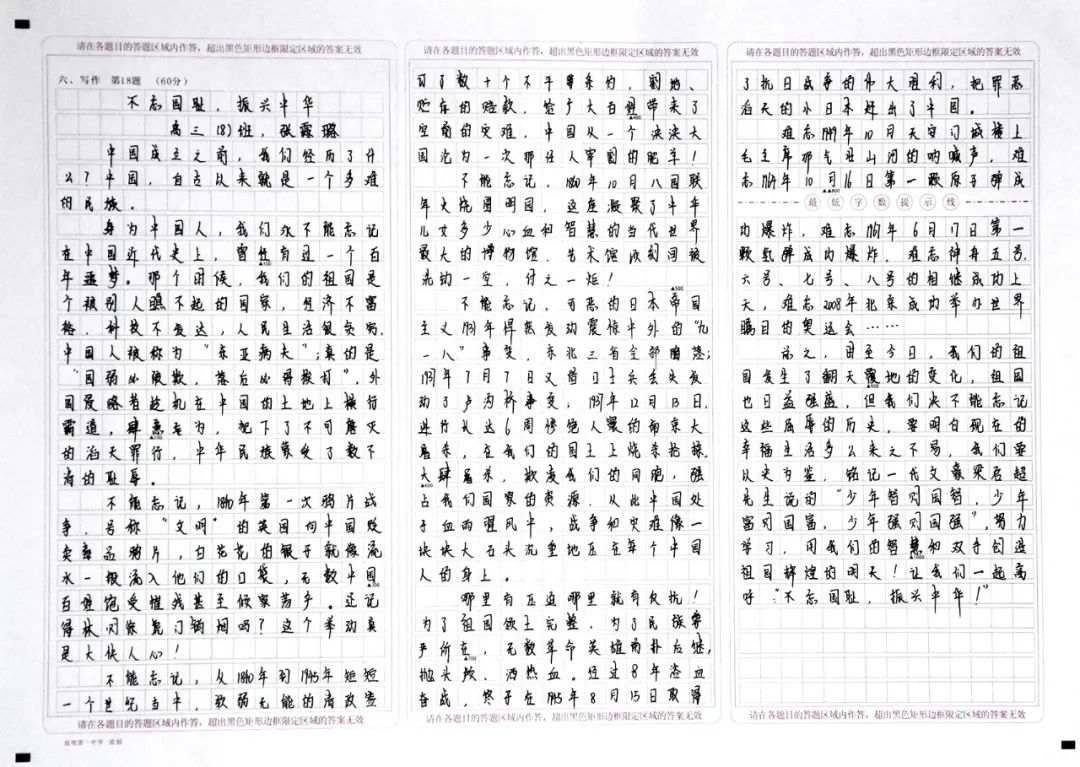 请在各题目的答题区域内作答，超出黑色矩形边框限定区域的答案无效
六、写作 第18题 （60分）
不忘国耻，振兴中华
高三（8）班，张露璐
中国成立之前，我们经历了什
么？中国，自古以来就是一个多难
的民族。
身为中国人，我们永不能忘记
在中国近代史上，曾经有过一个百
年噩梦。那个时候，我们的祖国是
个被别人瞧不起的国家，经济不富
裕，科技不发达，人民生活很贫穷，
中国人被称为“东亚病夫”；真的是
“国弱必被欺，落后必得挨打”，外
国侵略者趁机在中国的土地上横行
霸道，肆意妄为，犯下了不可磨灭
的滔天罪行，中华民族蒙受了数不
清的耻辱。
不能忘记，1840年第一次鸦片战
争，号称“文明”的英国向中国贩
卖毒品鸦片，白花花的银子就像流
水一般流入他们的口袋，无数中国
百姓饱受摧残甚至倾家荡产。还记
得林则徐虎门销烟吗？这个举动真
是大快人心！
不能忘记，从1840年到1945年短短
一个世纪当中，软弱无能的清政签
请在各题目的答题区域内作答，超出黑色矩形边框限定区域的答案无效
昆明第一中学 监制
请在各题目的答题区域内作答，超出黑色矩形边框限定区域的答案无效
订了数十个不平等条约，割地、
贮库的赔款，给广大百姓带来了
空前的灾难，中国从一个泱泱大
国沦为一次那任人宰国的肥羊！
不能忘记，1860年10月八国联
年火烧圆明园，这座凝聚了中华
儿女多少心血和智慧的当代世界
最大的博物馆、艺术馆顷刻间被
洗劫一空，付之一炬！
不能忘记，可恶的日本帝国
主义1931年悍然发动震惊中外的“九
一八”事变，东北三省全部陷落；
1937年7月7日又借口士兵丢失发
动了卢沟桥事变；1937年12月13日，
进行长达6周惨绝人寰的南京大
屠杀，在我们的国土上烧杀抢掠，
大肆屠杀，欺凌我们的同胞，强
占我们国家的资源，从此中国处
于血雨腥风中，战争和灾难像一
块块大石头沉重地压在每个中国
人的身上。
哪里有压迫哪里就有反抗！
为了祖国领土完整，为了民族尊
严所在，无数革命英雄前扑后继，
抛头颅、洒热血。经过8年浴血
奋战，终于在1945年8月15日取得
请在各题目的答题区域内作答，超出黑色矩形边框限定区域的答案无效
请在各题目的答题区域内作答，超出黑色矩形边框限定区域的答案无效
了抗日战争的伟大胜利，把罪恶
滔天的小日本赶出了中国。
难忘1949年10月天安门城楼上
毛主席那气壮山河的呐喊声，难
忘1964年10月16日第一颗原子弹成
最低字数提示线
功爆炸，难忘1967年6月17日第一
颗氢弹成功爆炸，难忘神舟五号，
六号、七号、八号的相继成功上
天，难忘2008年北京成功举办世界
瞩目的奥运会……
总之，时至今日，我们的祖
国发生了翻天覆地的变化，祖国
也日益强盛，但我们决不能忘记
这些屈辱的历史，要明白现在的
幸福生活多么来之不易，我们要
以史为鉴，铭记一代文豪梁启超
先生说的“少年智则国智，少年
富则国富，少年强则国强”，努力
学习，用我们的智慧和双手创造
祖国辉煌的明天！让我们一起高
呼：“不忘国耻，振兴中华！”
请在各题目的答题区域内作答，超出黑色矩形边框限定区域的答案无效